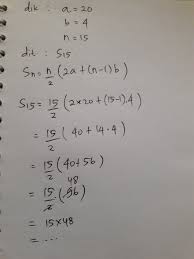 dik : a = 20
b = 4
n = 15
dit : S15
Sn = n/2 (2a + (n-1) b)
S15 = 15/2 (2×20 + (15-1).4)
= 15/2 (40 + 14.4)
= 15/2 (40 + 56)
48
= 15/2 (96)
= 15 × 48
= ....